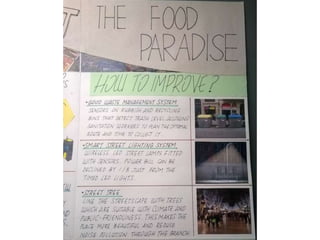 THE FOOD
PARADISE
HOW TO IMPROVE?
WASTE MANAGEMENT SYSTEM
SENSORS ON RUBBISH AND RECYCLING
BINS THAT DETECT TRASH LEVEL ALLOWING
SANITATION WORKERS TO PLAN THE OPTIMAL
ROUTE AND TIME TO COLLECT IT.
•SMART STREET LIGHTING SYSTEM
WIRELESS LED STREET LAMPS FITTED
WITH SENSORS. POWER BILL CAN BE
DECLINED BY 1/3 JUST FROM THE
TIMED LED LIGHTS.
•STREET TREE
LINE THE STREETSCAPE WITH TREES
WHICH ARE SUITABLE WITH CLIMATE AND
PUBLIC-FRIENDLINESS. THIS MAKES THE
PLACE MORE BEAUTIFUL AND REDUCE
NOISE POLLUTION THROUGH THE BRANCH